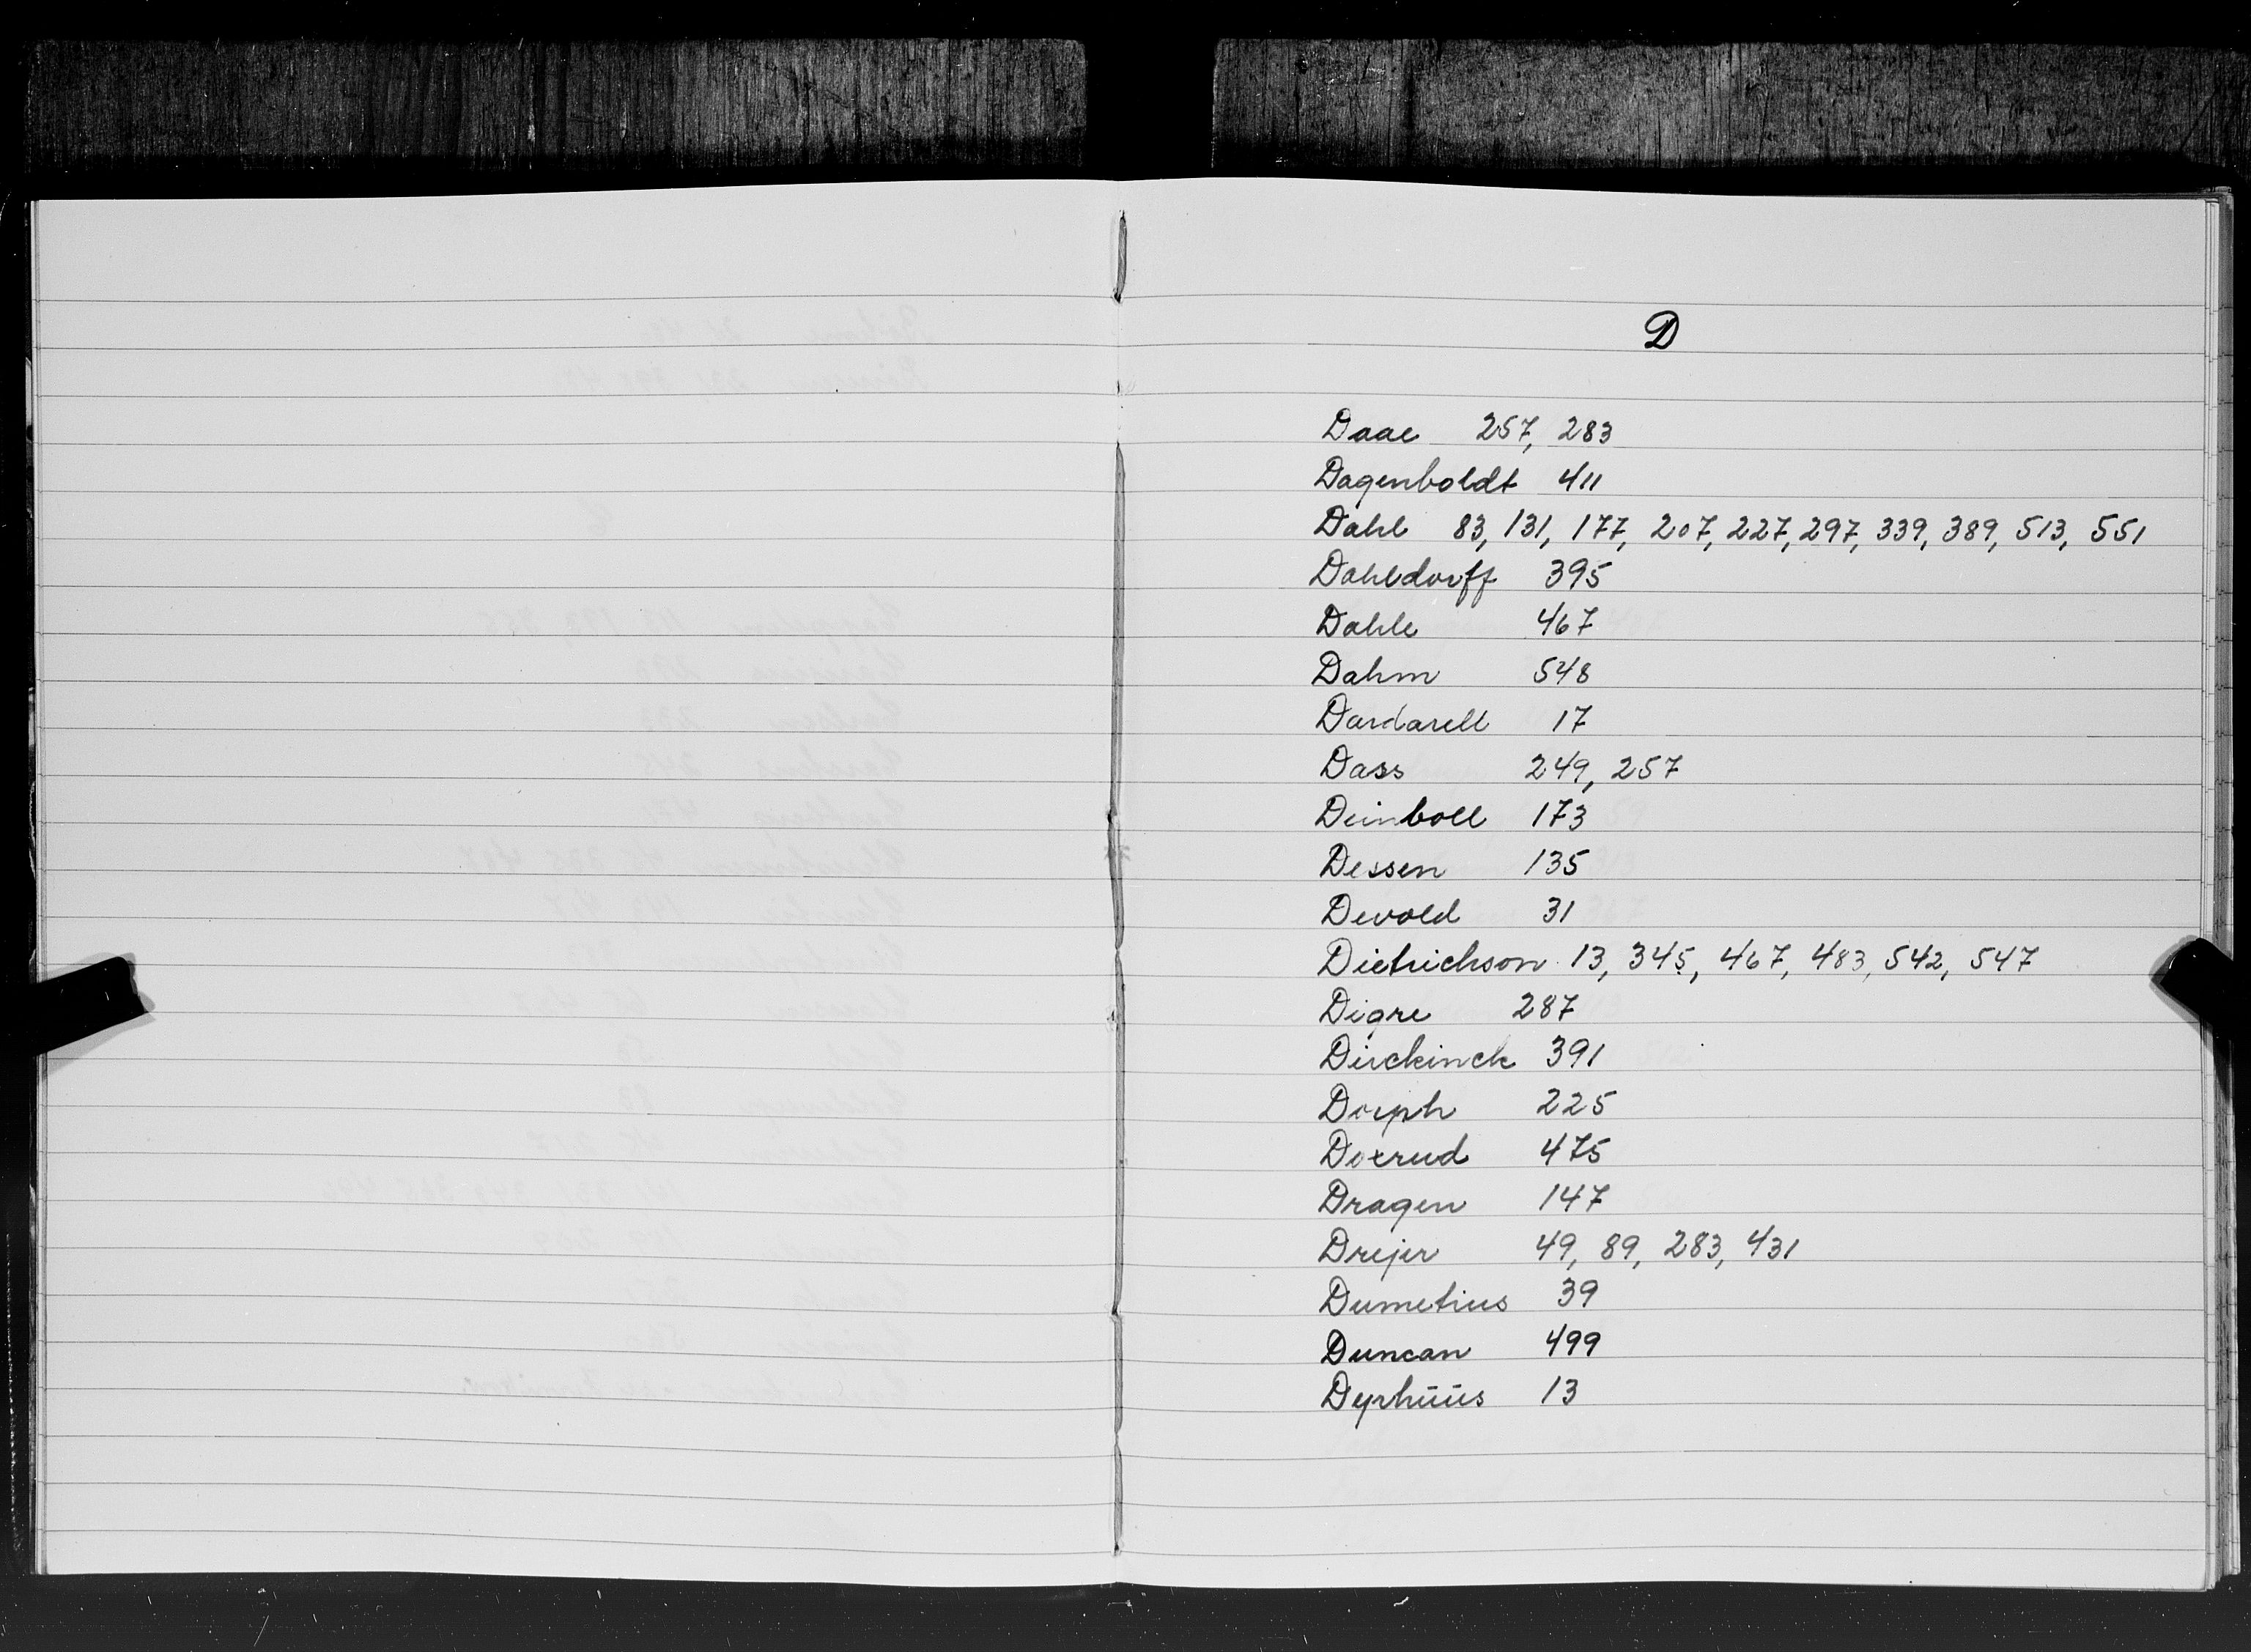 D
Daae 257, 283
Dagenboldt 411
Dahl 83, 131, 177, 207, 227, 297, 339, 389, 513, 551
Dahldorff 395
Dahle 467
Dahm 548
Dardarell 17
Dass 249, 257
Deinboll 173
Dessen 135
Devold 31
Dietrichson 13, 345, 467, 483, 542, 547
Digre 287
Dirckinck 391
Dorph 225
Doxrud 475
Dragen 147
Drejer 49, 89, 283, 431
Dumetius 39
Duncan 499
Dyrhüüs 13